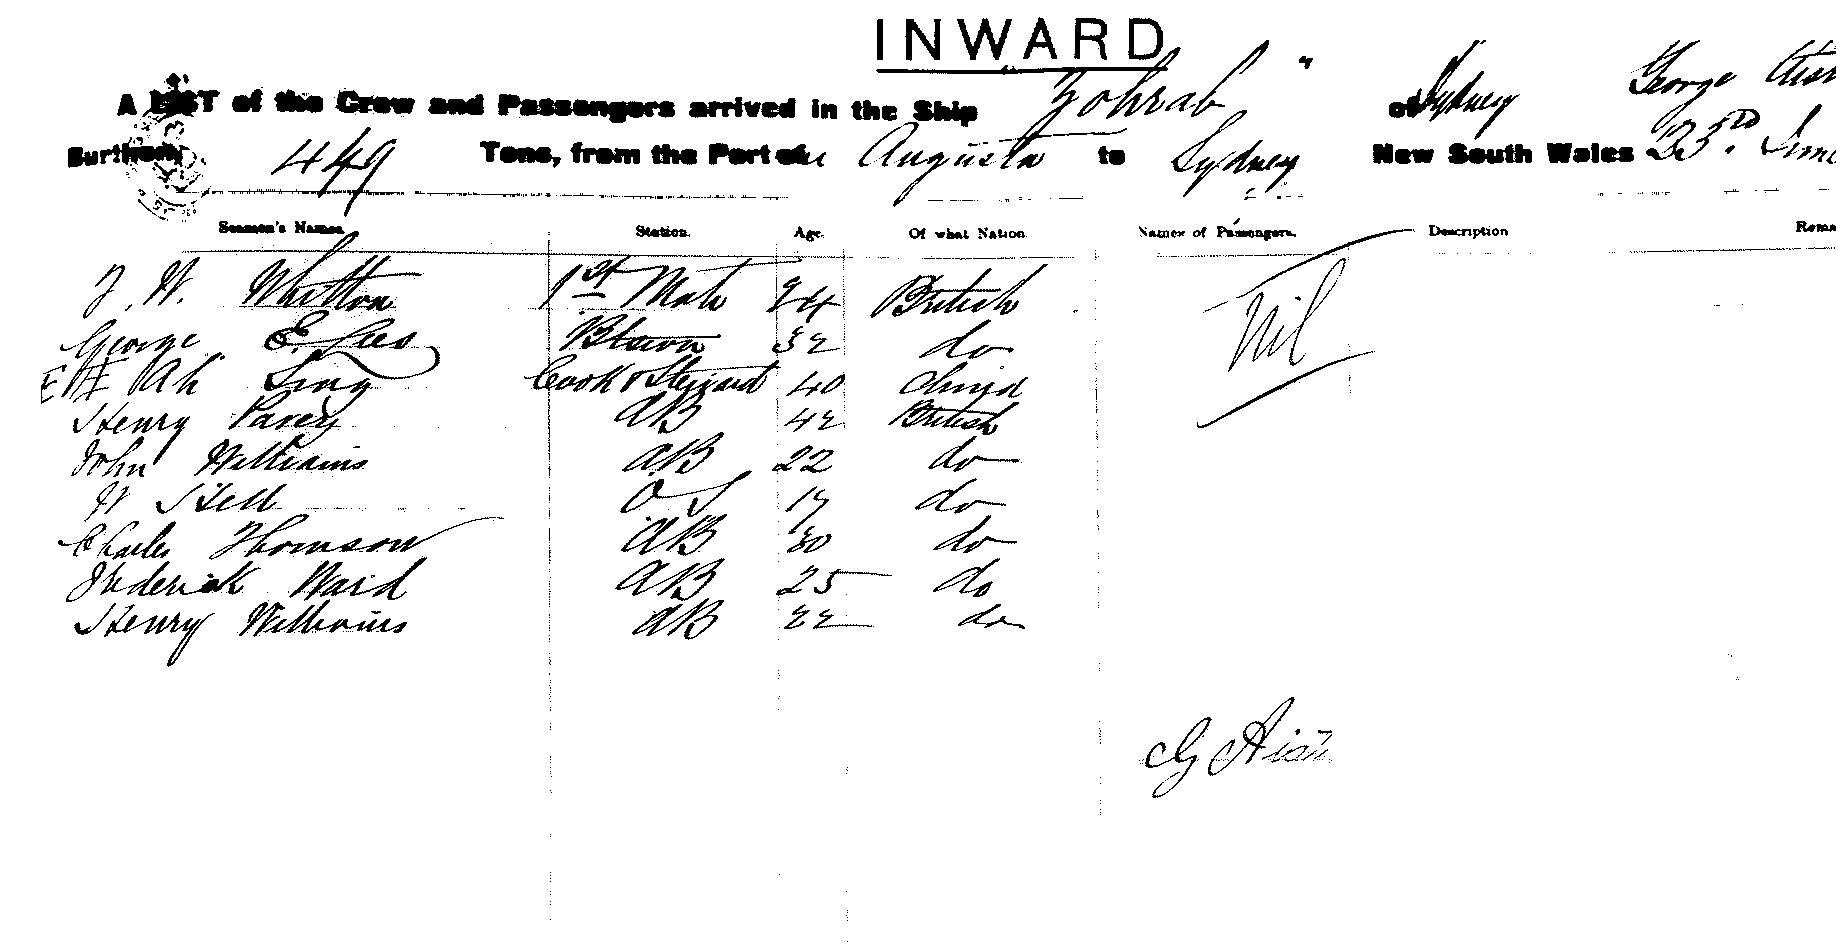 INWARD
A LIST of the Crew and Passengers arrived in the Ship Zohrab " of Sydney George
Burthen 449 Tons, from the Port of Augusta to Sydney New South Wales 23rd June
Seamen's Names. Station. Age. Of what Nation. Names of Passengers. Description Rema
W. Whitton 1st Mate 24 British Nil
George E. Lees 32 do
Ah Sing Cook & Steward 40 China
Henry Pavey AB 42 British
John Williams AB 22 do
W Stell O S 17 do
Charles Thomson AB 30 do
Frederick Ward AB 25 do
Henry Williams AB 22 do
G